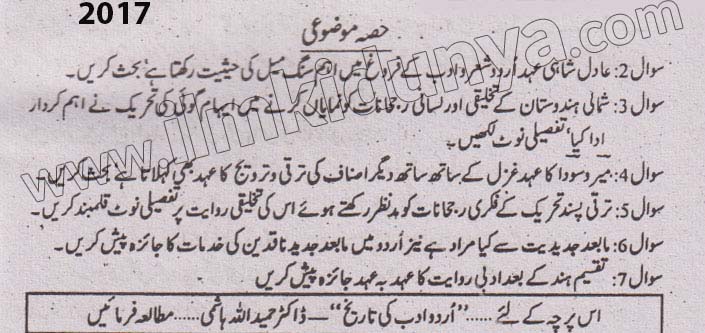 2017
حصہ موضوعی
سوال 2: عادل شاہی عہد اُردو شعر و ادب کے فروغ میں اہم سنگ میل کی حیثیت رکھتا ہے' بحث کریں۔
سوال 3: شمالی ہندوستان کے تخلیقی اور لسانی رجحانات کو نمایاں کرنے میں ایہام گوئی کی تحریک نے اہم کردار
ادا کیا' تفصیلی نوٹ لکھیں۔
سوال 4: میر و سودا کا عہد غزل کے ساتھ ساتھ دیگر اصناف کی ترقی و ترویج کا عہد بھی کہلاتا ہے بحث کریں۔
سوال 5: ترقی پسند تحریک کے فکری رجحانات کو مد نظر رکھتے ہوئے اس کی تخلیقی روایت پر تفصیلی نوٹ قلمبند کریں۔
سوال 6: مابعد جدیدیت سے کیا مراد ہے نیز اُردو میں مابعد جدید ناقدین کی خدمات کا جائزہ پیش کریں۔
سوال 7: تقسیم ہند کے بعد ادبی روایت کا عہد بہ عہد جائزہ پیش کریں
اس پرچہ کے لئے ......"اُردو ادب کی تاریخ"—ڈاکٹر حمید اللہ ہاشمی......مطالعہ فرمائیں
www.ilmkidunya.com